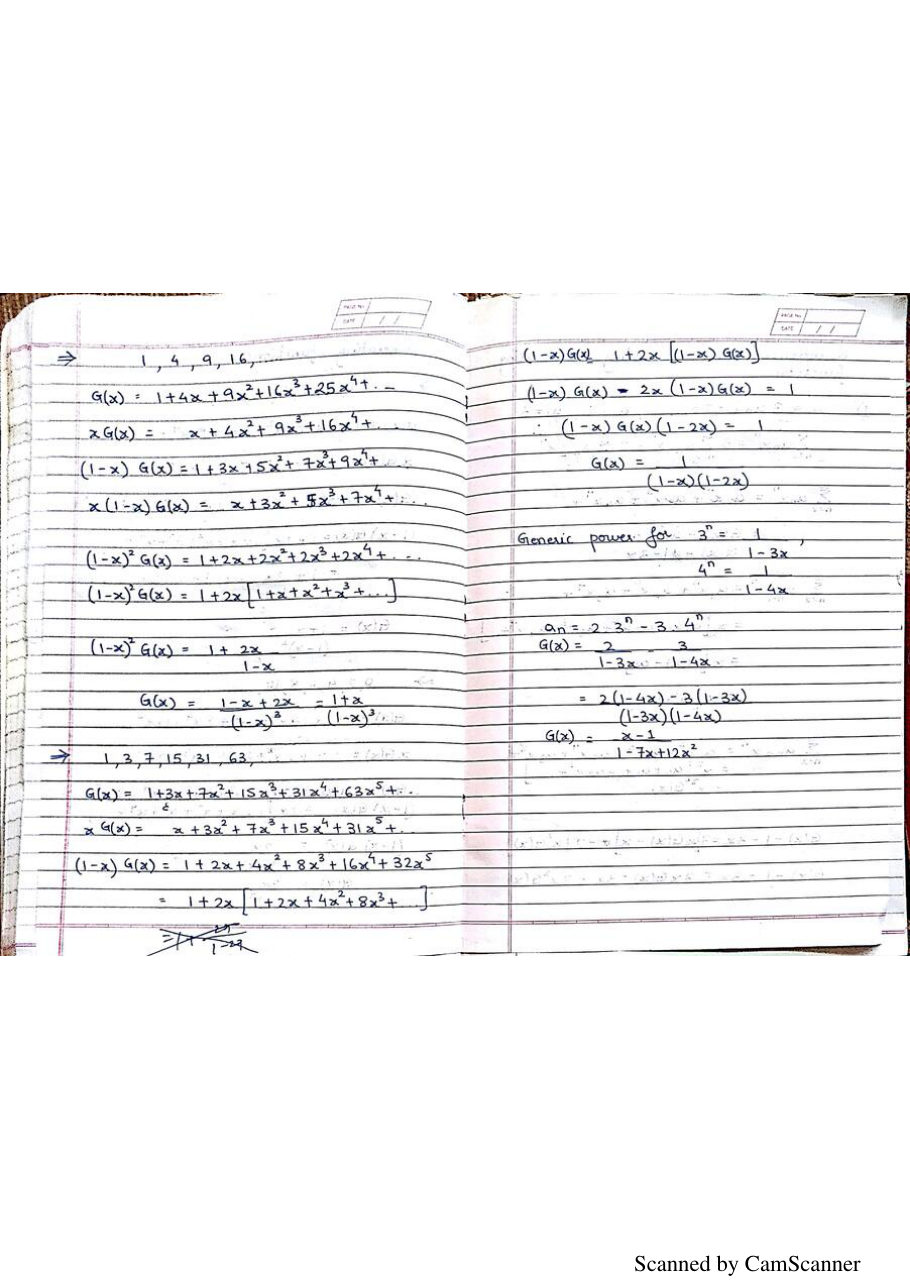 PAGE No.
DATE / /
⇒ 1, 4, 9, 16, ...
G(x) = 1+4x+9x²+16x³+25x⁴+...
x G(x) = x+4x²+9x³+16x⁴+...
(1-x) G(x) = 1+3x+5x²+7x³+9x⁴+...
x(1-x)G(x) = x+3x²+5x³+7x⁴+...
(1-x)² G(x) = 1+2x+2x²+2x³+2x⁴+...
(1-x)² G(x) = 1+2x[1+x+x²+x³+...]
(1-x)² G(x) = 1+ 2x
1-x
G(x) = 1-x+2x = 1+x
(1-x)³ (1-x)³
⇒ 1, 3, 7, 15, 31, 63,
G(x) = 1+3x+7x²+15x³+31x⁴+63x⁵+...
x G(x) = x+3x²+7x³+15x⁴+31x⁵+...
(1-x) G(x) = 1+2x+4x²+8x³+16x⁴+32x⁵
= 1+2x[1+2x+4x²+8x³+...]
PAGE No.
DATE / /
(1-x)G(x) = 1+2x[(1-x) G(x)]
(1-x) G(x) - 2x(1-x)G(x) = 1
(1-x) G(x)(1-2x) = 1
G(x) = 1
(1-x)(1-2x)
Generic power for 3ⁿ = 1 ,
1-3x
4ⁿ = 1
1-4x
an = 2·3ⁿ - 3·4ⁿ
G(x) = 2 - 3
1-3x 1-4x
= 2(1-4x)-3(1-3x)
(1-3x)(1-4x)
G(x) = x-1
1-7x+12x²
Scanned by CamScanner